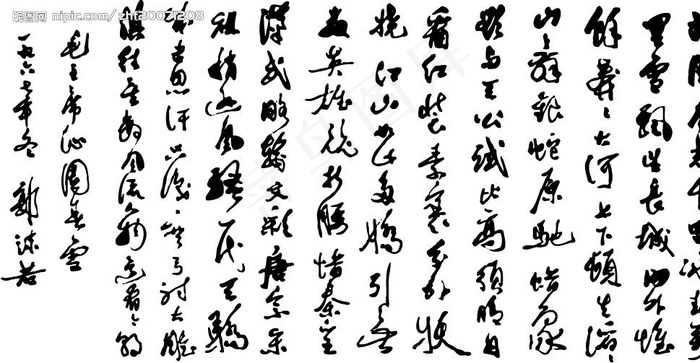 里雪飄望長城内外惟
餘莽々大河上下頓失滔
山舞銀蛇原馳蜡象
欲与天公試比高須晴日
看红装素裹分外妖
娆江山如此多嬌引無
数英雄競折腰惜秦皇
漢武略輸文采唐宗宋
祖稍逊風騷一代天驕
成吉思汗只識弯弓射大雕
俱往矣数風流人物還看今朝
毛主席沁園春雪
一九六七年冬 郭沫若
昵图网 nipic.com/zhf3007i208